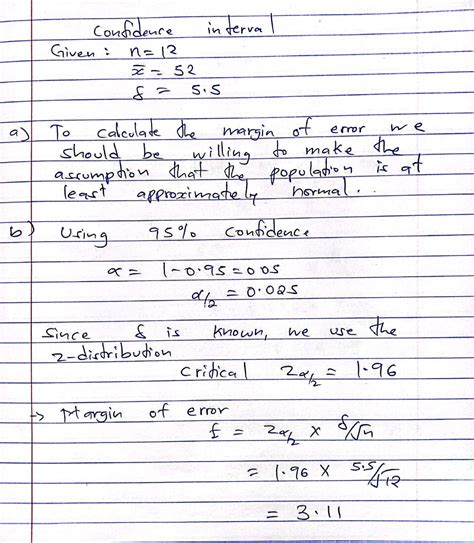 Confidence interval
Given : n = 12
x̄ = 52
δ = 5.5
a) To calculate the margin of error we
should be willing to make the
assumption that the population is at
least approximately normal..
b) Using 95% confidence
α = 1-0.95 = 0.05
α/2 = 0.025
Since δ is known, we use the
z-distribution
critical Zα/2 = 1.96
→ Margin of error
E = Zα/2 × δ/√n
= 1.96 × 5.5/√12
= 3.11